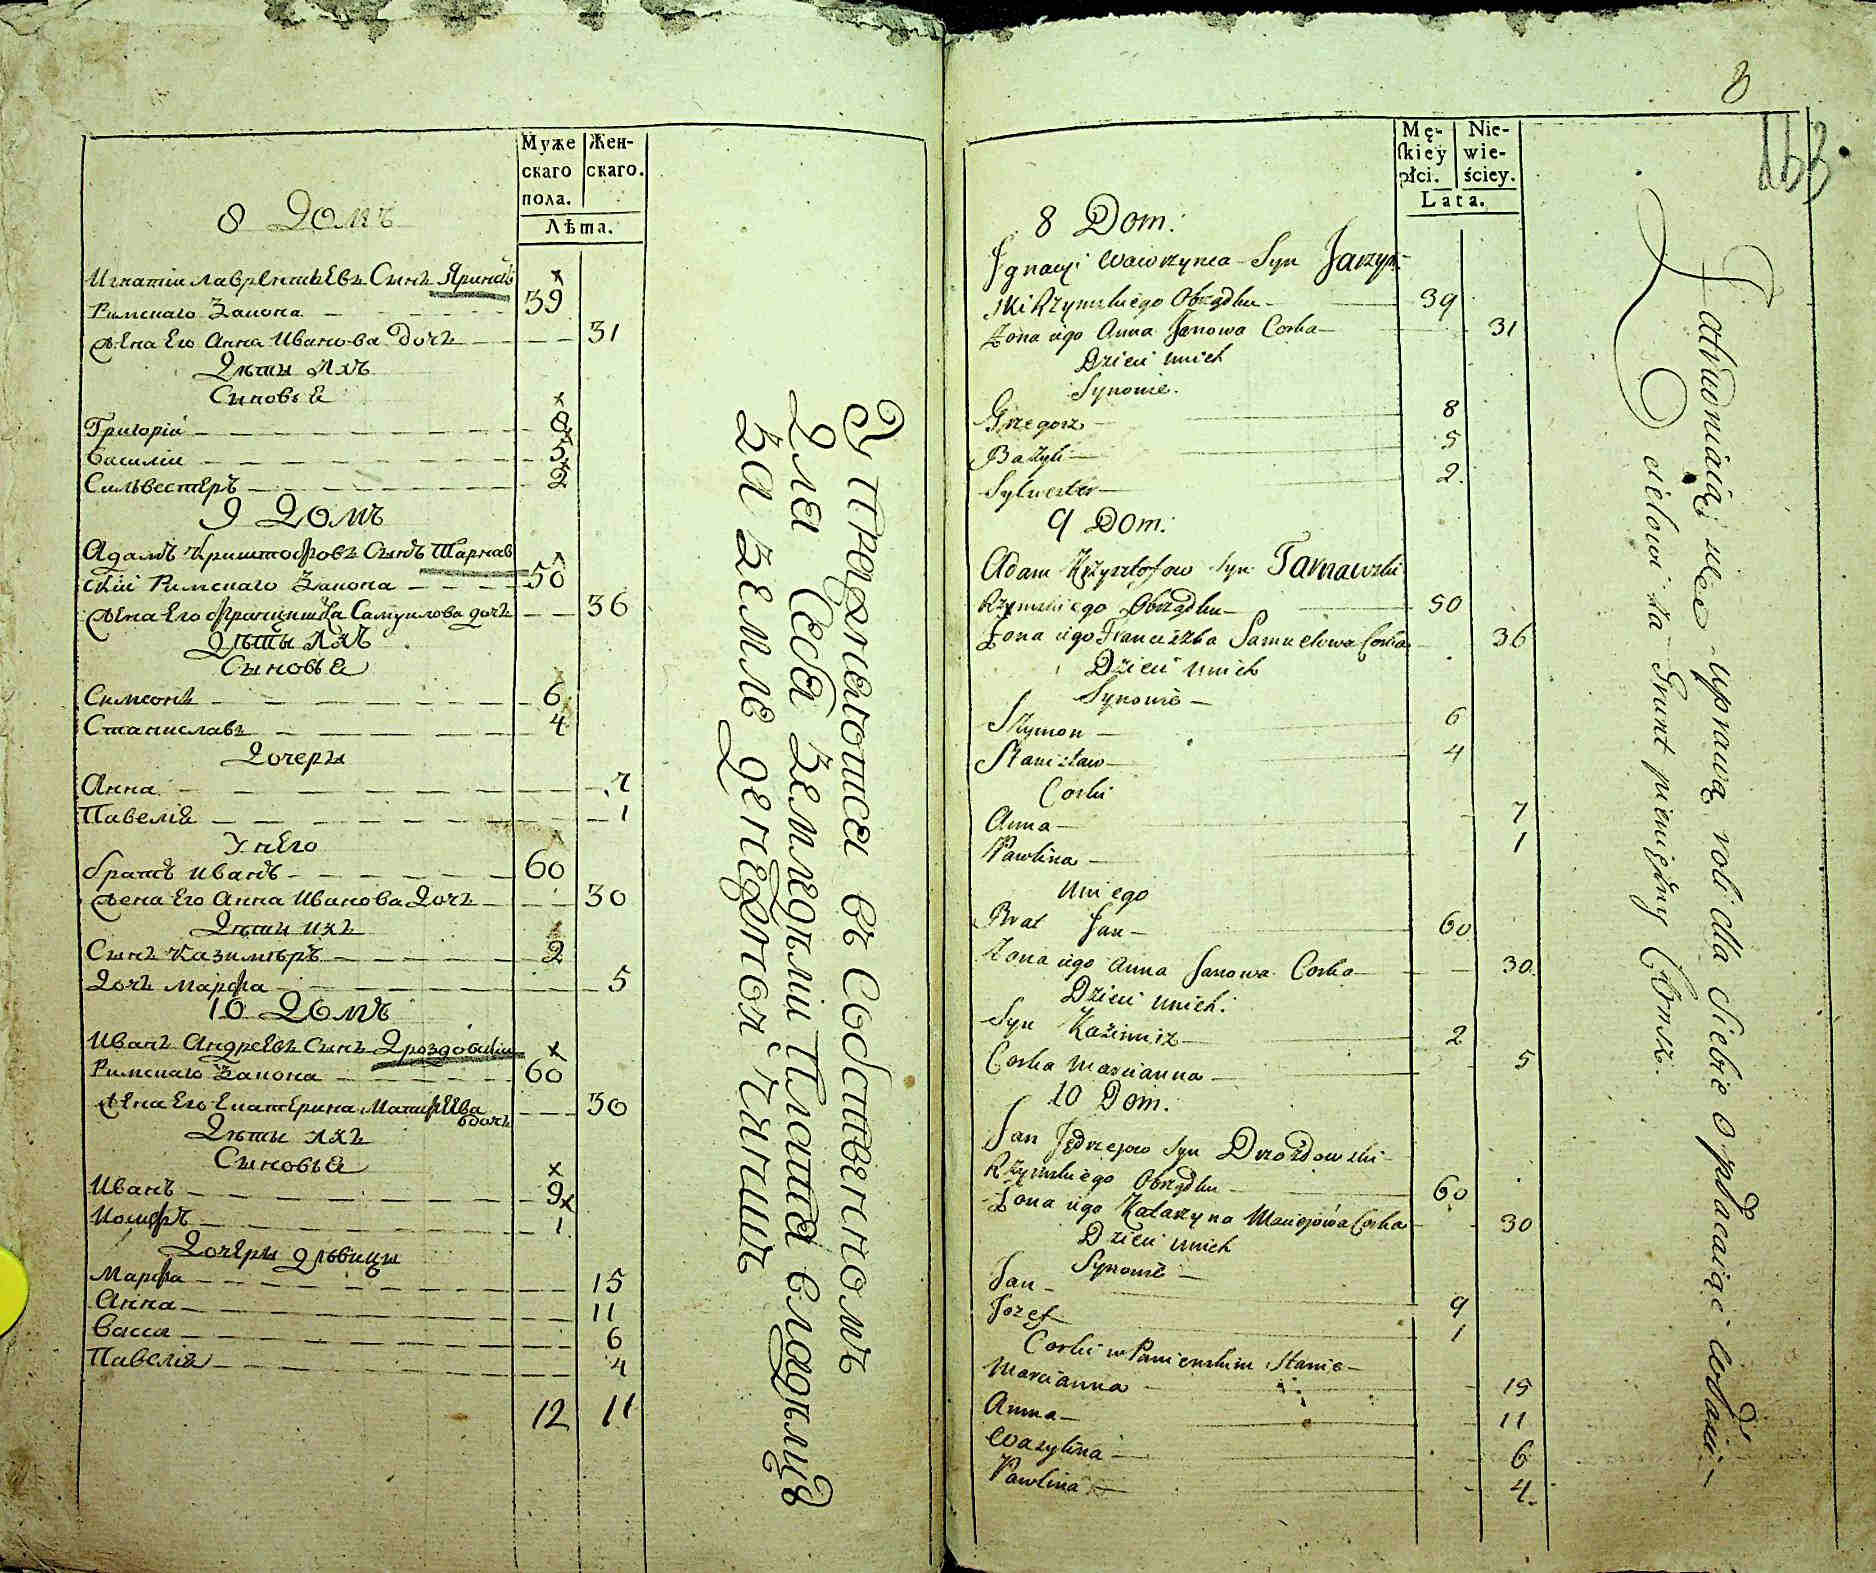 Муже
скаго
пола.
Жен-
скаго.
Лѣта.
8 Домъ
Игнатіи Лаврентьевъ Сынъ Яринск
Римскаго Закона 39
Жена Его Анна Иванова Дочь 31
Дѣты Ихъ
Сыновья
Григорій 8
Василіи 5
Сильвестеръ 2
9 Домъ
Адамъ Криштофовъ Сынъ Тарнав
скій Римскаго Закона 50
Жена Его Францишка Самуилова дочь 36
Дѣты Ихъ
Сыновья
Симеонъ 6
Станиславъ 4
Дочеры
Анна 7
Павелія 1
У нЕго
братъ Иванъ 60
Жена Его Анна Иванова Дочь 30
Дѣты ихъ
Сынъ Казимѣръ 2
Дочь Марфа 5
10 Домъ
Иванъ Андреевъ Сынъ Дроздовскіи
Римскаго Закона 60
Жена Его Екатерина Матифеева дочь 30
Дѣты Ихъ
Сыновья
Иванъ 9
Иосифъ 1
Дочеры Дѣвицы
Марфа 15
Анна 11
Васса 6
Павелія 4
12 11
Упражняютса въ Собственномъ
Для Себя Земледѣліи Платя владѣлцѣ
За Землѣ денежной чиншъ
8
163
Mę-
skiey
płci.
Nie-
wie-
ściey.
Lata.
8 Dom:
Ignacyi Wawrzynca Syn Jarzyn-
ski Rzymskiego Obrządku 39
Zona iego Anna Janowa Corka 31
Dzieci unich
Synowie.
Grzegorz 8
Bazyli 5
Sylwester 2.
9 Dom:
Adam Krzysztofow Syn Tarnawski
Rzymskiego Obrządku 50
Zona iego Franciszka Samuelowa Corka 36
Dzieci unich
Synowie
Szymon 6
Stanisław 4
Corki
Anna 7
Pawlina 1
Uniego
Brat Jan 60
Zona iego Anna Janowa Corka 30.
Dzieci unich:
Syn Kazimirz 2
Corka Marcianna 5
10 Dom:
Jan Jędrzejow Syn Drozdowski
Rzymskiego Obrządku 60
Zona iego Katarzyna Maciejowa Corka 30
Dzieci unich
Synowie
Jan 9
Jozef 1
Corki w Panienskim Stanie
Marcianna 15
Anna 11
Wasylina 6
Pawlina 4.
Zatrudniaią się uprawą roli dla siebie opłacaiąc
Dziełowi za Grunt pieniężny Czynsz.